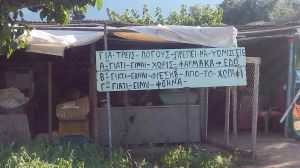 ΓΙΑ-ΤΡΕΙΣ-ΛΟΓΟΥΣ-ΠΡΕΠΕΙ-ΝΑ-ΨΩΝΙΣΕΙΣ
Α=ΓΙΑΤΙ-ΕΙΜΑΙ-ΧΩΡΙΣ-ΦΑΡΜΑΚΑ→ΕΔΩ
Β=ΓΙΑΤΙ-ΕΙΜΑΙ-ΦΡΕΣΚΑ-ΑΠΟ-ΤΟ-ΧΩΡΑΦΙ
Γ=ΓΙΑΤΙ-ΕΙΜΑΙ-ΦΘΗΝΑ-